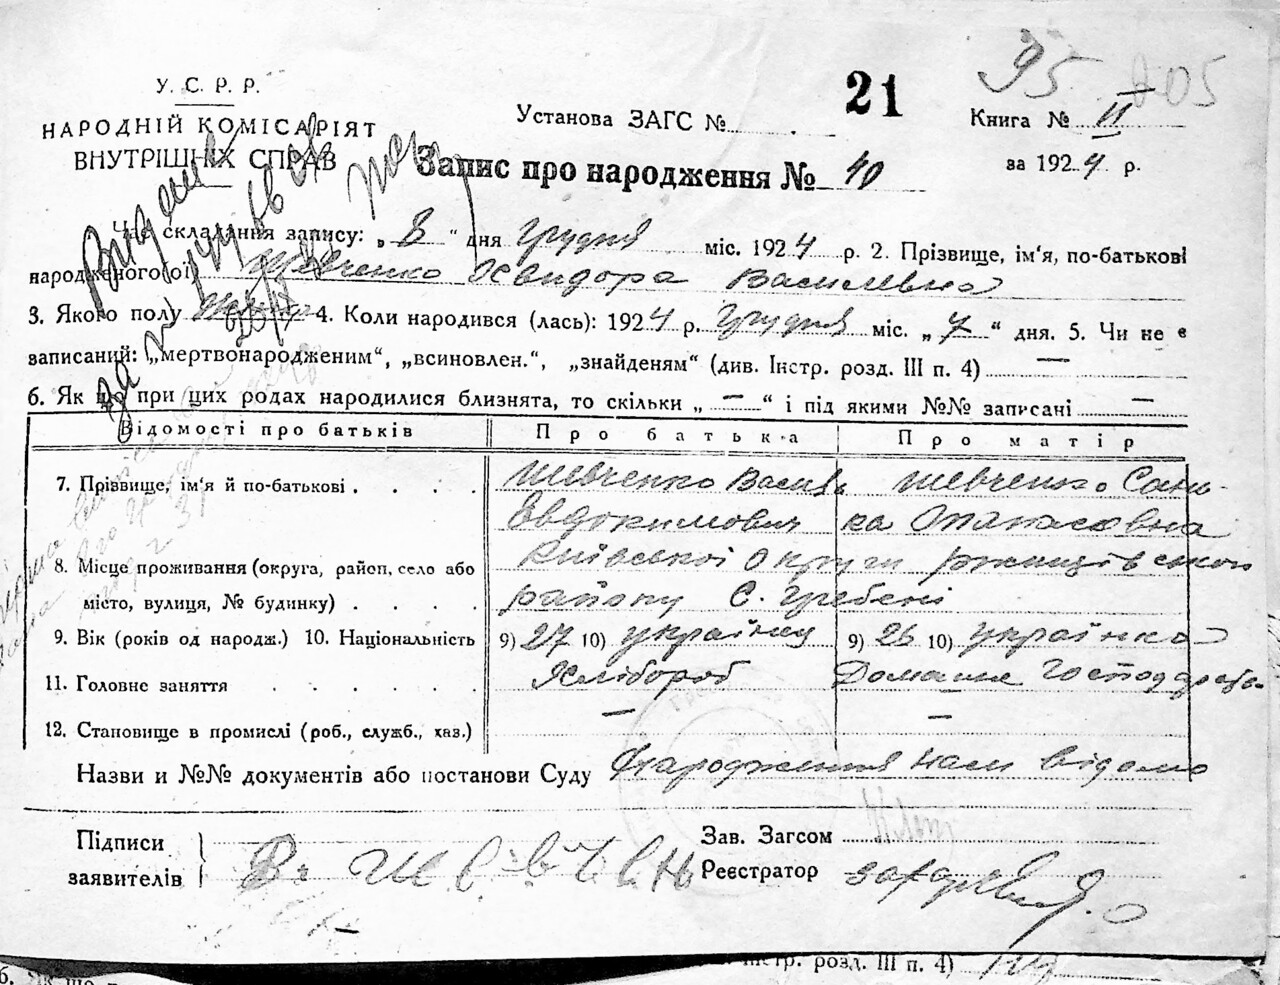 95 205
У. С. Р. Р.
НАРОДНІЙ КОМІСАРІЯТ
ВНУТРІШНІХ СПРАВ
Установа ЗАГС №
21
Книга № II
за 1924 р.
Запис про народження № 40
Видане
Час складання запису: „8“ дня Грудня міс. 1924 р. 2. Прізвище, ім'я, по-батькові
народженого(ої) Шевченко Ісвидора Василевна
3. Якого полу 4. Коли народився (лась): 1924 р. Грудня міс. „7“ дня. 5. Чи не є
записаний: „мертвонародженим“, „всиновлен.“, „знайденям“ (див. Інстр. розд. III п. 4) —
6. Як що при цих родах народилися близнята, то скільки „—“ і під якими №№ записані —
Відомості про батьків Про батька Про матір
7. Прізвище, ім'я й по-батькові . . . . Шевченко Василь Шевченко Сань-
Евдокимович ка Опанасовна
8. Місце проживання (округа, район, село або Київської Округи ржищівського
місто, вулиця, № будинку) . . . . району С. Гребені
9. Вік (років од народж.) 10. Національність 9) 27 10) українец 9) 26 10) українка
11. Головне заняття . . . . . Хлібороб Домашне Господарство
12. Становище в промислі (роб., служб., хаз.) — —
Назви и №№ документів або постанови Суду Народження нам відомо
Підписи
заявителів
В. Шевченко
Зав. Загсом
Реєстратор
6. Як що п
Інстр. розд. III п. 4)